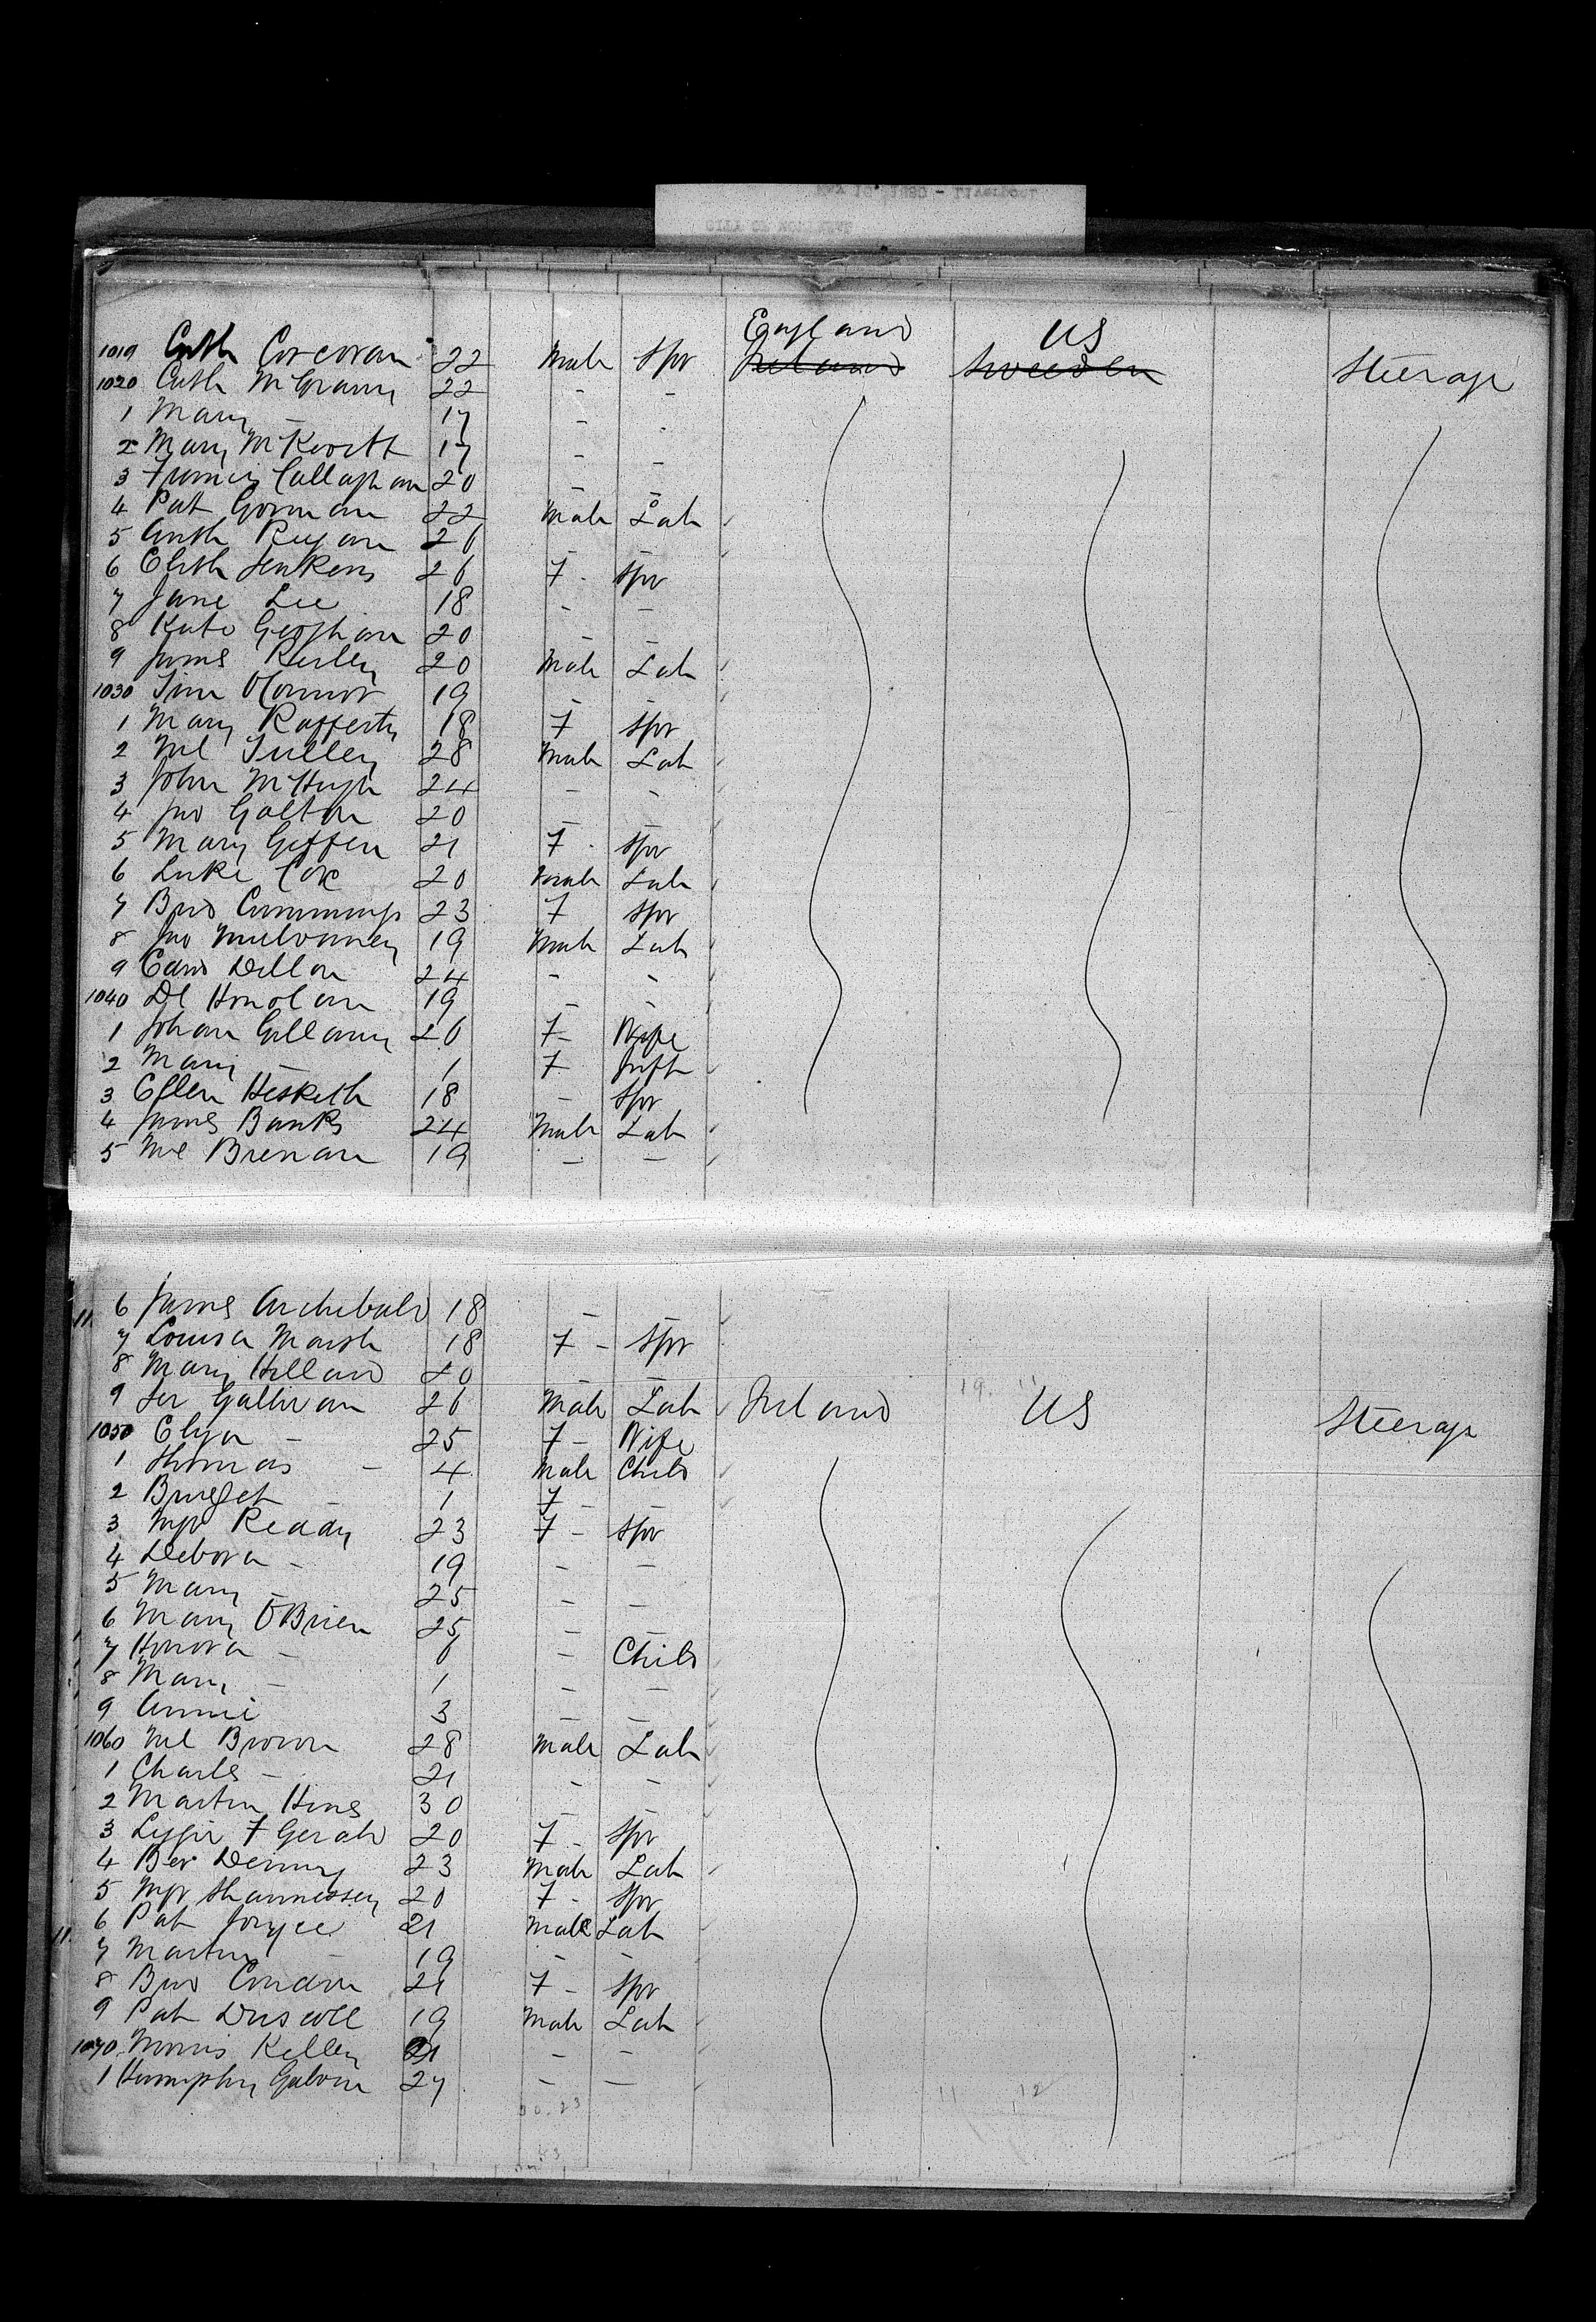 England US
1019 Cath Corcoran 22 Male Spr Ireland Sweeden Steerage
1020 Cath McGrann 22 - -
1 Mary - 17 - -
2 Mary McKevitt 17 - -
3 Francis Callaghan 20 - -
4 Pat Gorman 22 Male Lab
5 Anth Ruyan 26 - -
6 Elith Jenkens 26 F - Spr
7 Jane Lee 18 - -
8 Kate Geoghan 20 - -
9 James Kerley 20 Male Lab
1030 Tim OConnor 19 - -
1 Mary Rafferty 18 F Spr
2 Ml Tulley 28 Male Lab
3 John McHugh 24 - -
4 Jno Galton 20 - -
5 Mary Geffen 21 F - Spr
6 Luke Cox 20 Male Lab
7 Brid Cummings 23 F Spr
8 Jno Mulvanney 19 Male Lab
9 Edwd Dillon 24 - -
1040 Dl Honolan 19 - -
1 Johan Gillanny 20 F - Wife
2 Mary - 1 F Inft
3 Ellen Hesketh 18 - Spr
4 James Banks 24 Male Lab
5 Ml Brenan 19 - -
6 James Archibald 18 - -
7 Louisa Marsh 18 F - Spr
8 Mary Hilland 20 - -
9 Jer Gallivan 26 Male Lab Ireland US Steerage
1050 Elyn - 25 F - Wife
1 Thomas - 4 Male Child
2 Bridget - 1 F - -
3 Mgt Reddy 23 F - Spr
4 Debora - 19 - -
5 Mary - 25 - -
6 Mary OBrien 25 - -
7 Honora - 6 - Child
8 Mary - 1 - -
9 Annie 3 - -
1060 Ml Brown 28 Male Lab
1 Charles - 21 - -
2 Martin Hines 30 - -
3 Lizzie F Gerald 20 F - Spr
4 Ber Denny 23 Male Lab
5 Mgt Shannessey 20 F - Spr
6 Pat Joyce 21 Male Lab
7 Martin - 19 - -
8 Brid Condon 21 F - Spr
9 Pat Driscoll 19 Male Lab
1070 Morris Kelley 21 - -
1 Humphry Galvin 27 - -